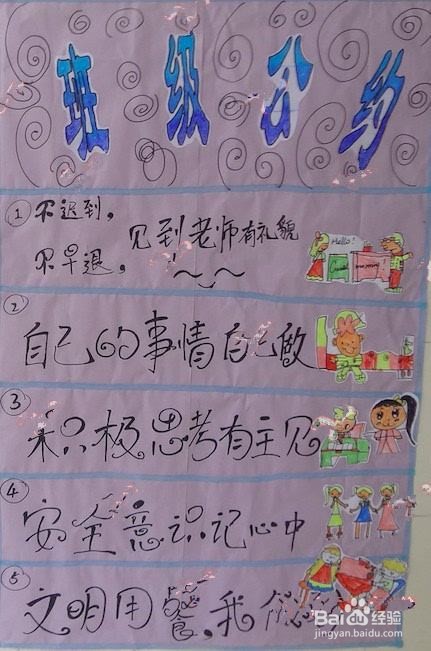 班级公约
①不迟到，
不早退，见到老师有礼貌
Hello!
②
自己的事情自己做
③
积极思考有主见
④
安全意识记心中
⑤
文明用餐，我
Baidu经验
jingyan.baidu.com